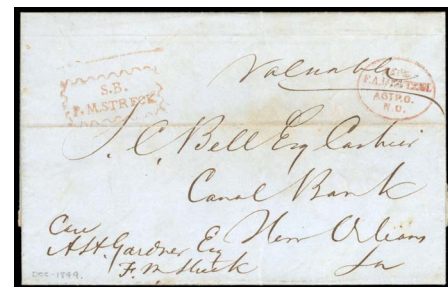 S.B.
F. M. STRECK
Valuable
AGT P.O.
N.O.
J. C. Bell Esq Cashier
Canal Bank
New Orleans
La
Care
A. H. Gardner Esq
F. M. Streck
DEC - 1849.